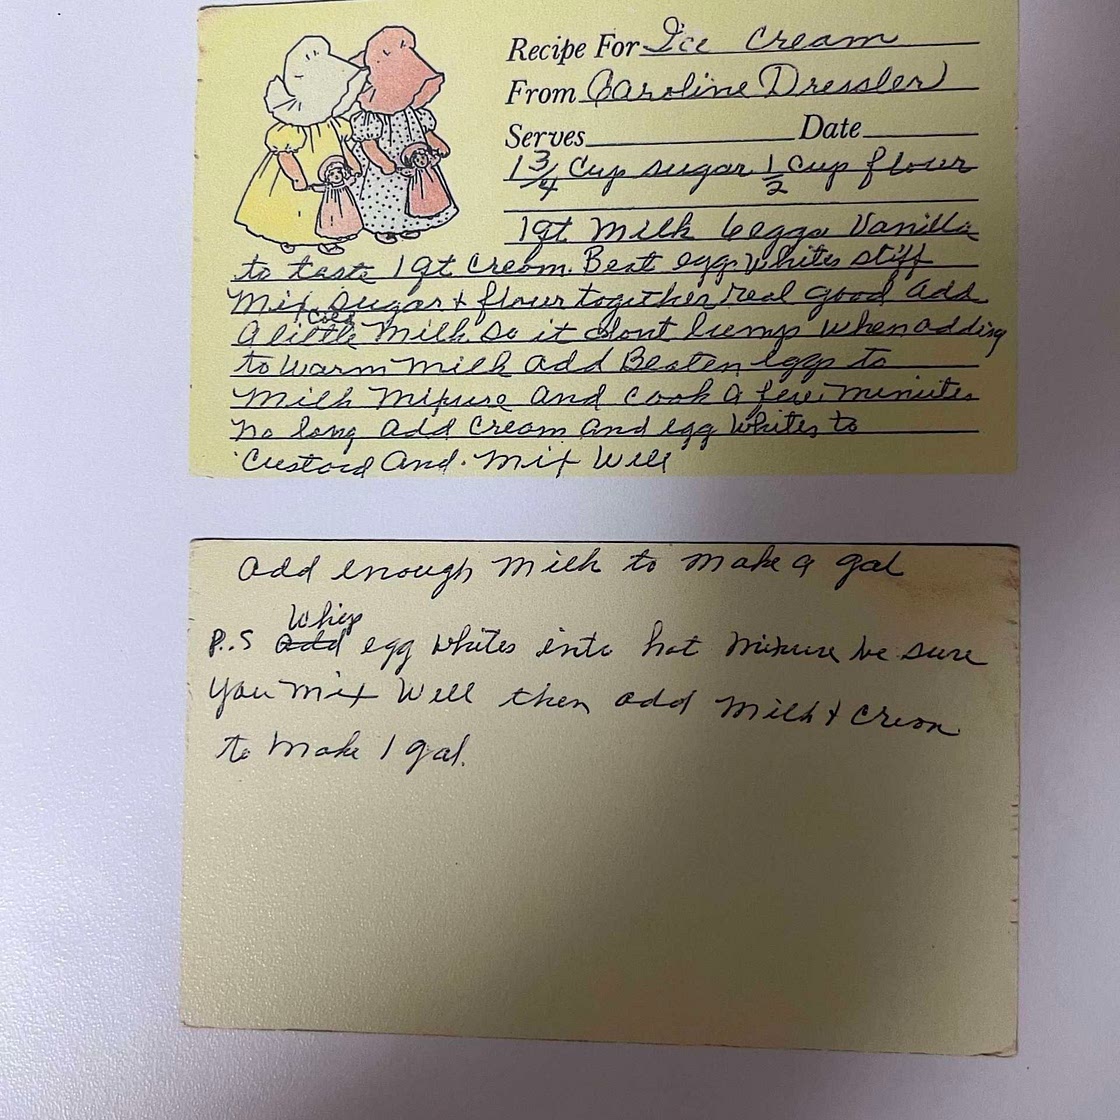 Recipe For Ice Cream
From Caroline Dressler
Serves Date
1 3/4 Cup sugar 1/2 cup flour
1qt Milk 6 eggs Vanilla
to taste 1 qt cream. Beat egg whites stiff
Mix sugar & flour together real good add
a little cold Milk so it dont lump when adding
to warm milk add Beaten eggs to
Milk Mixure and cook a few minutes
no long add cream and egg whites to
custard And. Mix Well
add enough milk to make a gal
P.S Whip egg whites into hot mixure be sure
you mix well then add milk & cream
to make 1 gal.